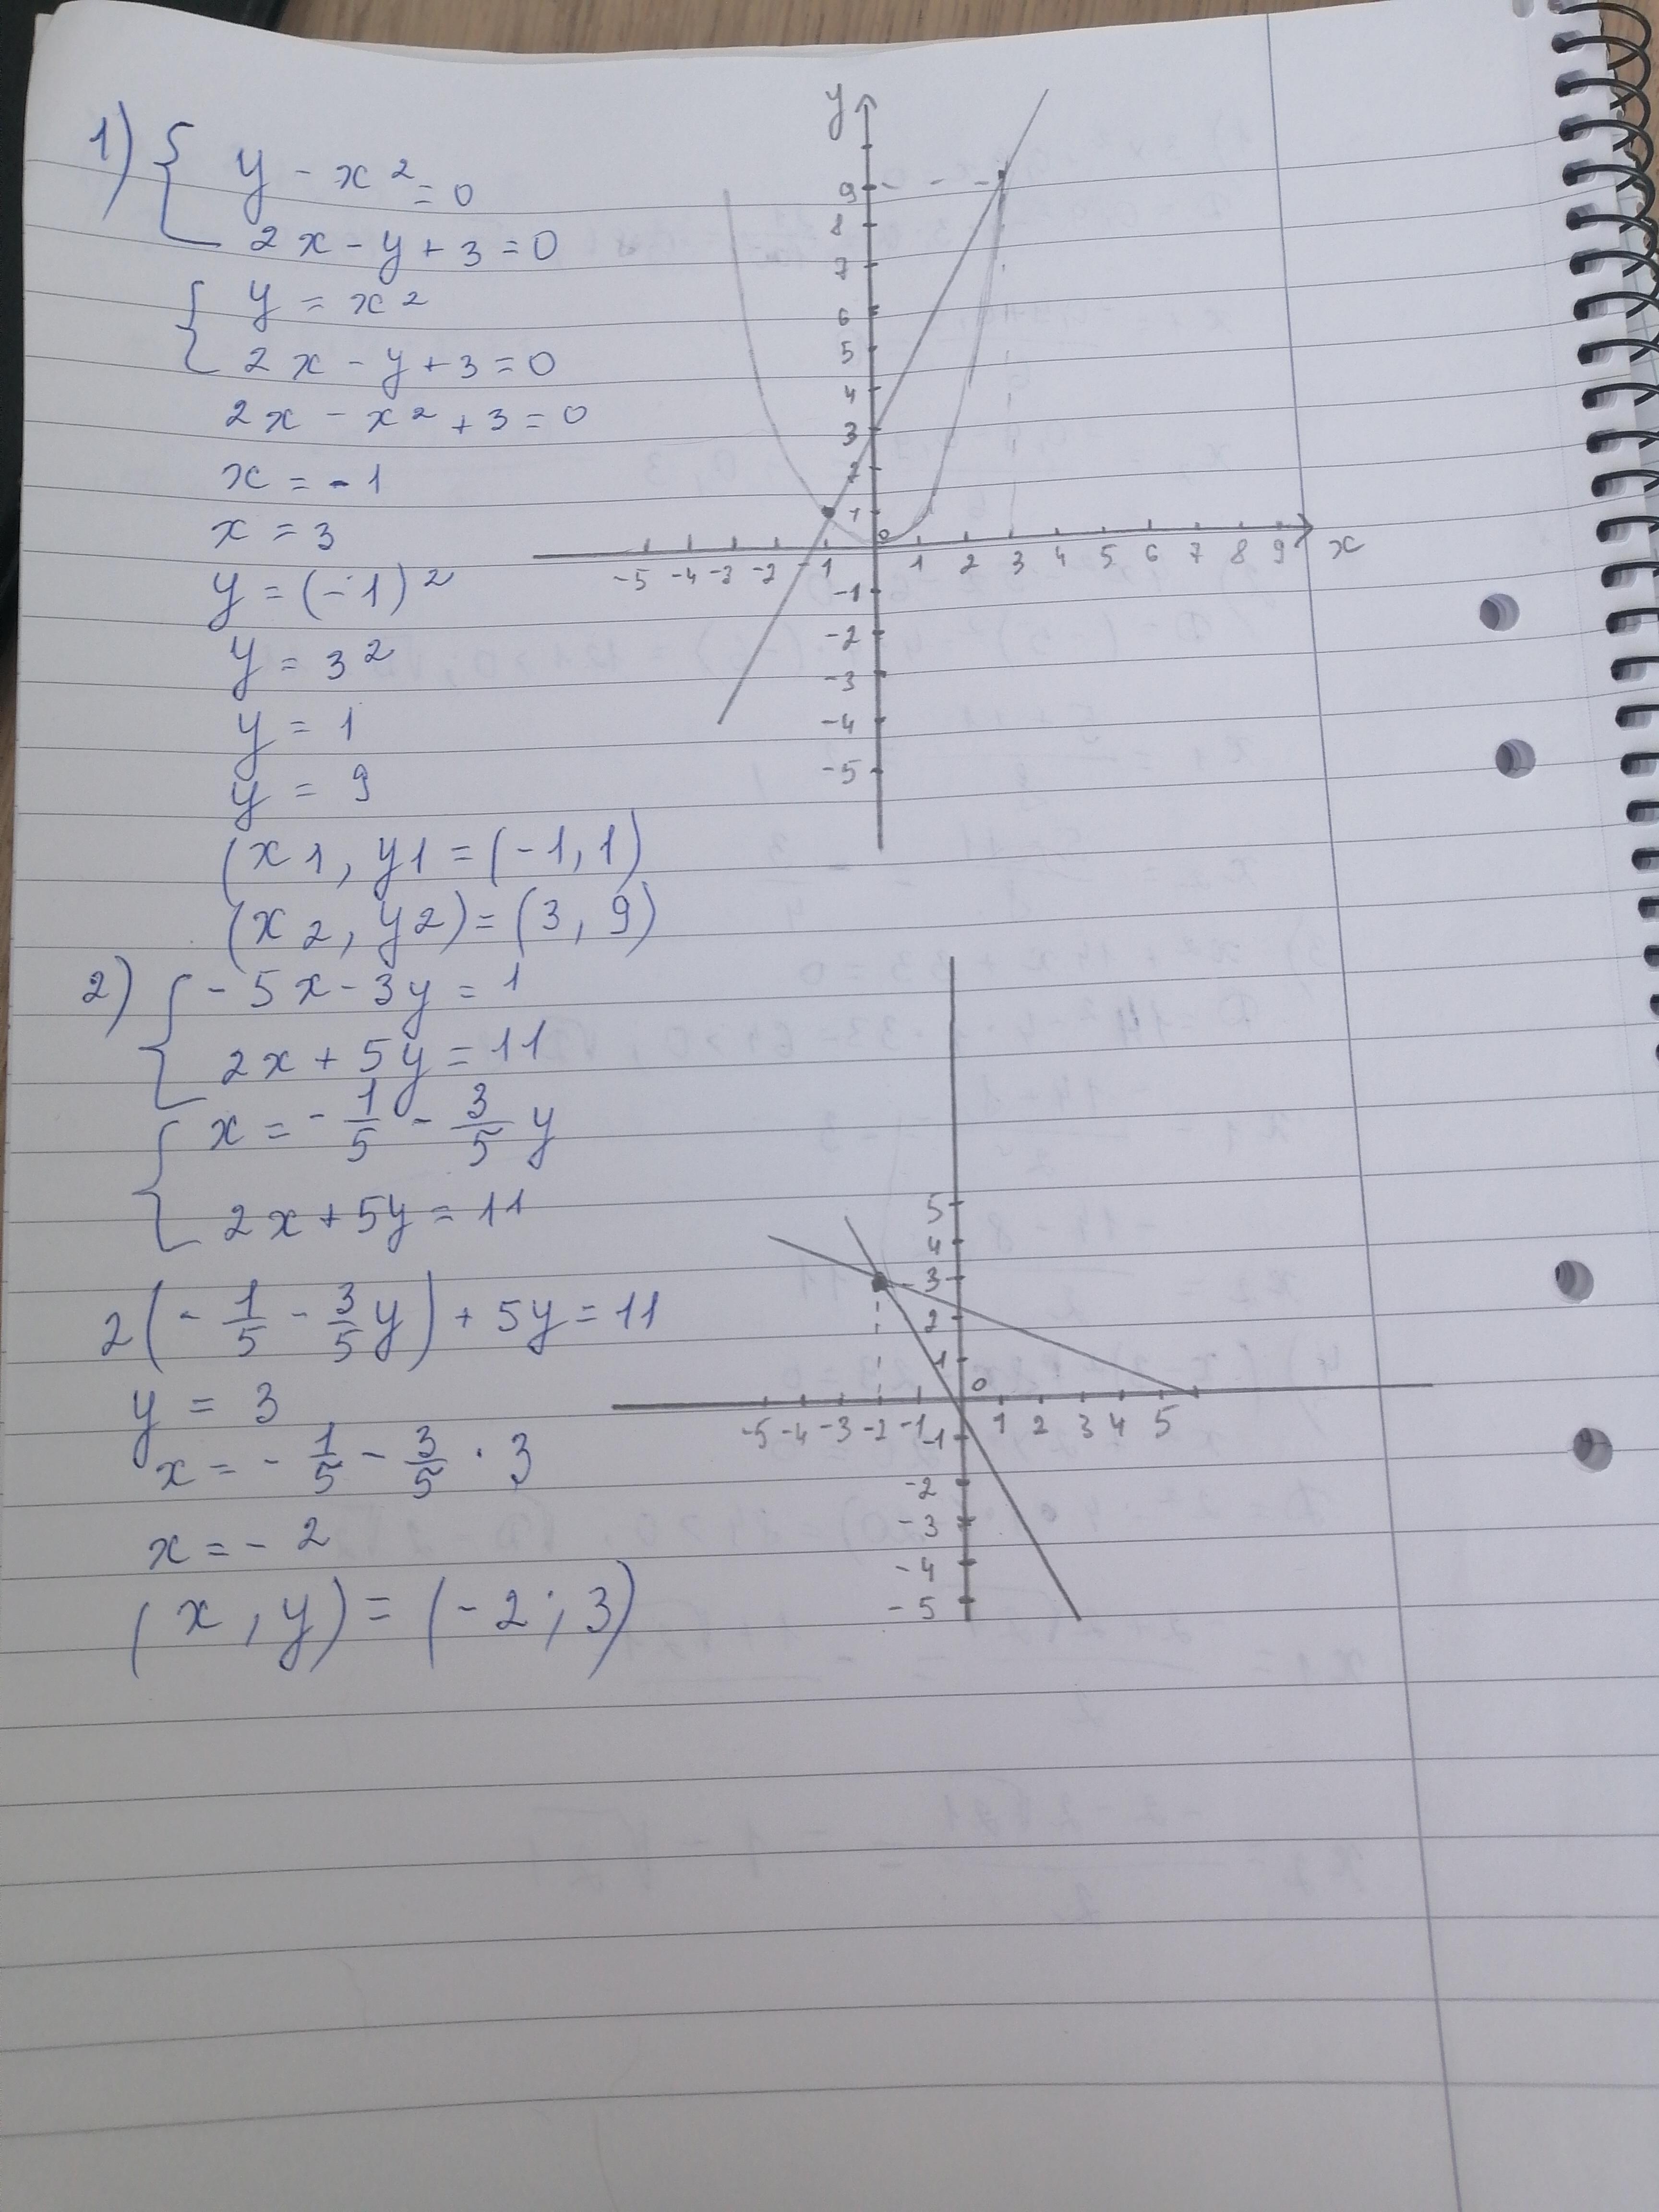 1) { y - x² = 0
2x - y + 3 = 0
{ y = x²
2x - y + 3 = 0
2x - x² + 3 = 0
x = -1
x = 3
y = (-1)²
y = 3²
y = 1
y = 9
(x1, y1 = (-1, 1)
(x2, y2) = (3, 9)
y
9
8
7
6
5
4
3
2
1
0
-5 -4 -3 -2 -1 1 2 3 4 5 6 7 8 9 x
-1
-2
-3
-4
-5
2) { -5x - 3y = 1
2x + 5y = 11
{ x = -1/5 - 3/5 y
2x + 5y = 11
2(-1/5 - 3/5 y) + 5y = 11
y = 3
x = -1/5 - 3/5 · 3
x = -2
(x, y) = (-2; 3)
5
4
3
2
1
0
-5 -4 -3 -2 -1 1 2 3 4 5
-1
-2
-3
-4
-5